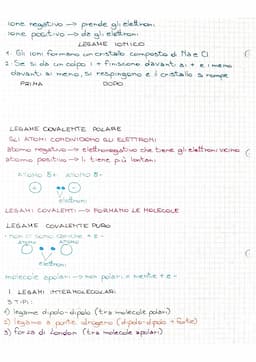 ione negativo → prende gli elettroni
ione positivo → dà gli elettroni
LEGAME IONICO
1. Gli ioni formano un cristallo composto di Na e Cl
2. Se si dà un colpo i + finiscono davanti ai + e i meno
davanti ai meno, si respingono e il cristallo si rompe
PRIMA DOPO
LEGAME COVALENTE POLARE
GLI ATOMI CONDIVIDONO GLI ELETTRONI
atomo negativo → elettronegativo che tiene gli elettroni vicino
atomo positivo → li tiene più lontani
ATOMO δ+ ATOMO δ-
elettroni
LEGAMI COVALENTI → FORMANO LE MOLECOLE
LEGAME COVALENTE PURO
• NON CI SONO CARICHE + E -
ATOMO ATOMO
elettroni
molecole apolari → non polari = niente + e -
I LEGAMI INTERMOLECOLARI
3 TIPI:
1) legame dipolo-dipolo (tra molecole polari)
2) legame a ponte idrogeno (dipolo-dipolo + forte)
3) forza di London (tra molecole apolari)